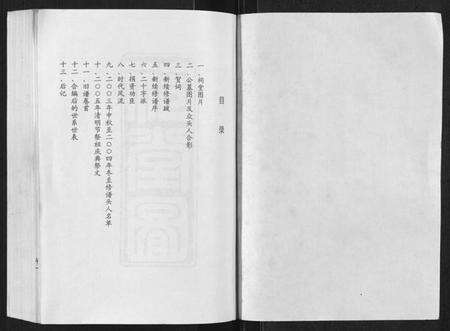 目录
一、祠堂图片
二、公墓图片及众头人合影
三、贺词
四、新续修谱跋
五、新续修谱序
六、二十字派
七、捐资功臣
八、时代风流
九、二〇〇三年中秋至二〇〇四年冬至修谱头人名单
十、二〇〇五年清明节祭祖庆典祭文
十一、旧谱卷首
十二、合编后的世系世表
十三、后记